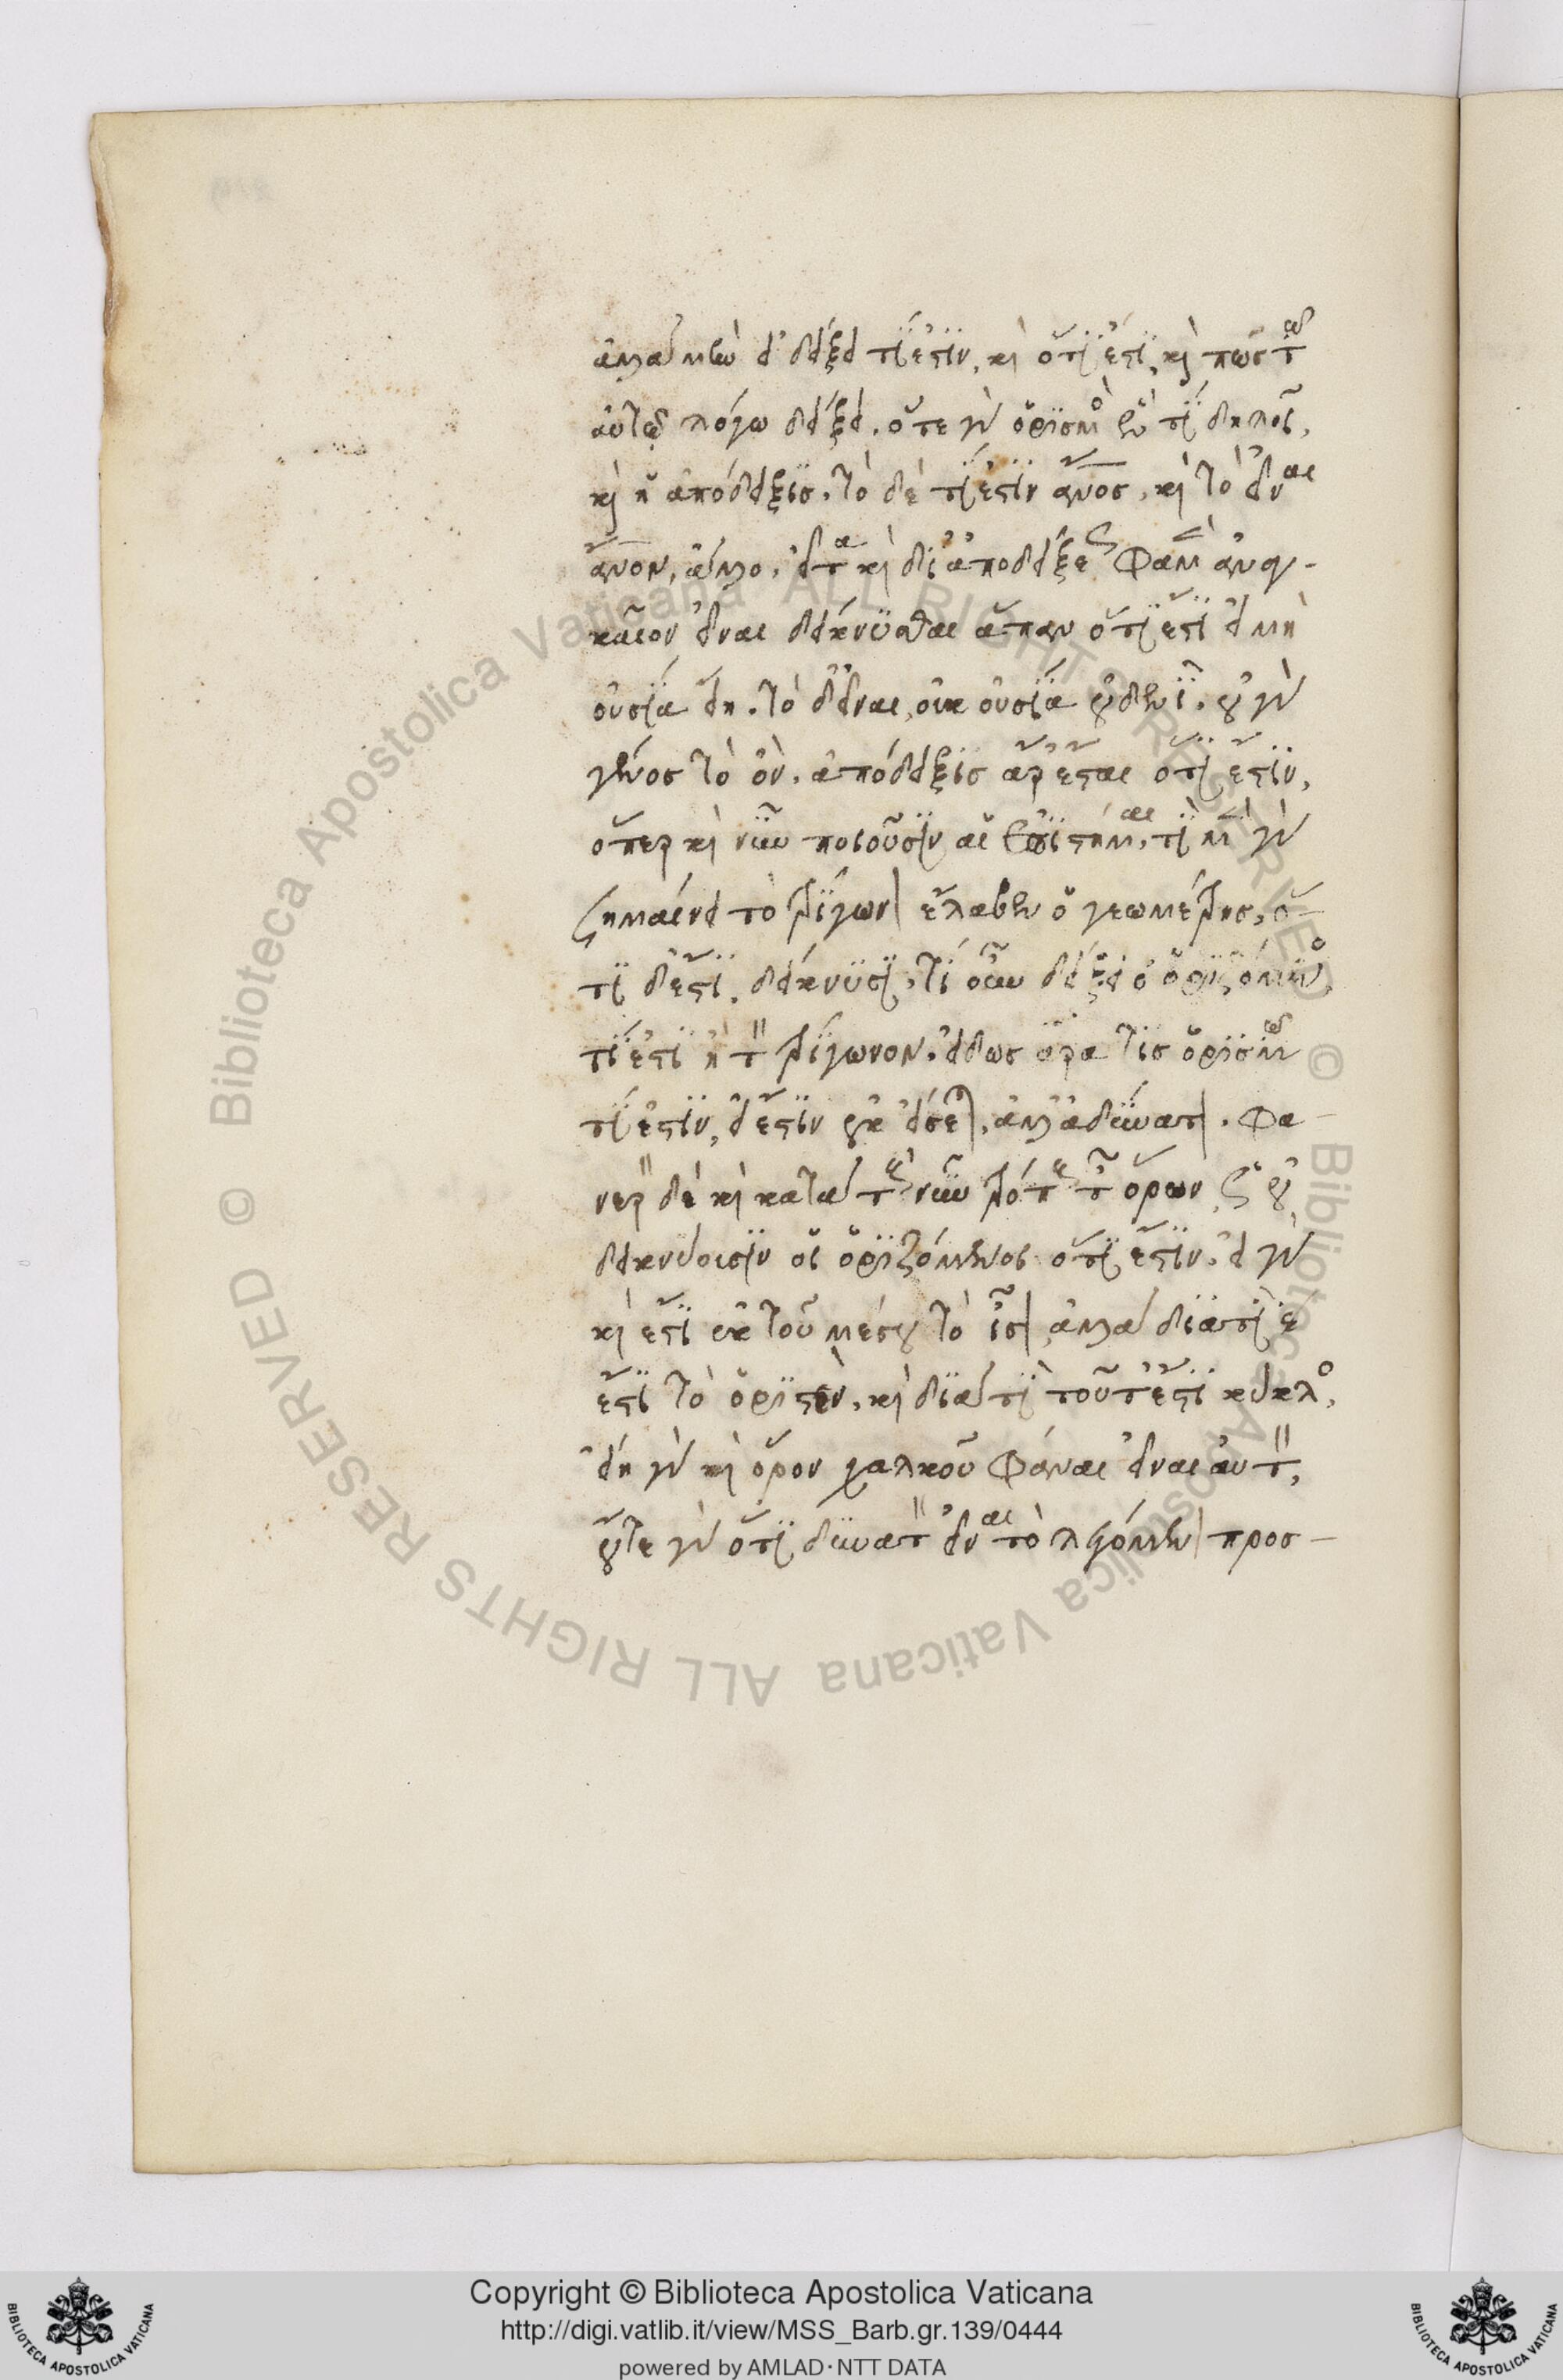 ἀλλὰ μὴν εἰ δείξει τί ἐστιν, καὶ ὅτι ἐστί, καὶ πῶς τῶ
αὐτῶ λόγω δείξει. ὅτε γὰρ ὁρισμὸς ἕν τι δηλοῖ,
καὶ ἡ ἀπόδειξις. τὸ δὲ τί ἐστιν ἄνος, καὶ τὸ εἶναι
ἄνον, ἄλλο. εἶτα καὶ δι ἀποδείξεώς φαμὲν ἀναγ-
καῖον εἶναι δείκνυσθαι ἅπαν ὅτι ἐστὶ εἰ μὴ
οὐσία εἴη. τὸ δ εἶναι, οὐκ οὐσία οὐδενί. οὐ γὰρ
γένος τὸ ὄν. ἀπόδειξις ἄρ ἔσται ὅτι ἐστίν,
ὅπερ καὶ νῦν ποιοῦσιν αἱ ἐπιστῆμαι. τί μὲν γὰρ
σημαίνει τὸ τρίγωνον ἔλαβεν ὁ γεωμέτρης, ὅ-
τι δ ἐστί, δείκνυσι. τί οὖν δείξει ὁ ὁριζόμενος,
τί ἐστι ἢ τὸ τρίγωνον. εἰδὼς ἄρα τις ὁρισμῶ
τί ἐστιν, εἰ ἔστιν οὐκ εἴσεται. ἀλλ ἀδύνατον. φα-
νερὸν δὲ καὶ κατὰ τοὺς νῦν τρόπους τῶν ὅρων, ὡς οὐ
δεικνύουσιν οἱ ὁριζόμενοι ὅτι ἔστιν. εἰ γὰρ
καὶ ἐστὶ ἐκ τοῦ μέσου τὸ ἴσον ἀλλὰ διὰ τί
ἐστὶ τὸ ὁρισθέν, καὶ διὰ τί τοῦτ ἐστὶ κύκλος,
εἴη γὰρ καὶ ὅρον χαλκοῦ φάναι εἶναι αὐτόν,
οὔτε γὰρ ὅτι δυνατὸν εἶναι τὸ λεγόμενον προσ-
Copyright © Biblioteca Apostolica Vaticana
http://digi.vatlib.it/view/MSS_Barb.gr.139/0444
powered by AMLAD · NTT DATA
BIBLIOTECA APOSTOLICA VATICANA
BIBLIOTECA APOSTOLICA VATICANA
© Biblioteca Apostolica Vaticana ALL RIGHTS RESERVED © Biblioteca Apostolica Vaticana ALL RIGHTS RESERVED